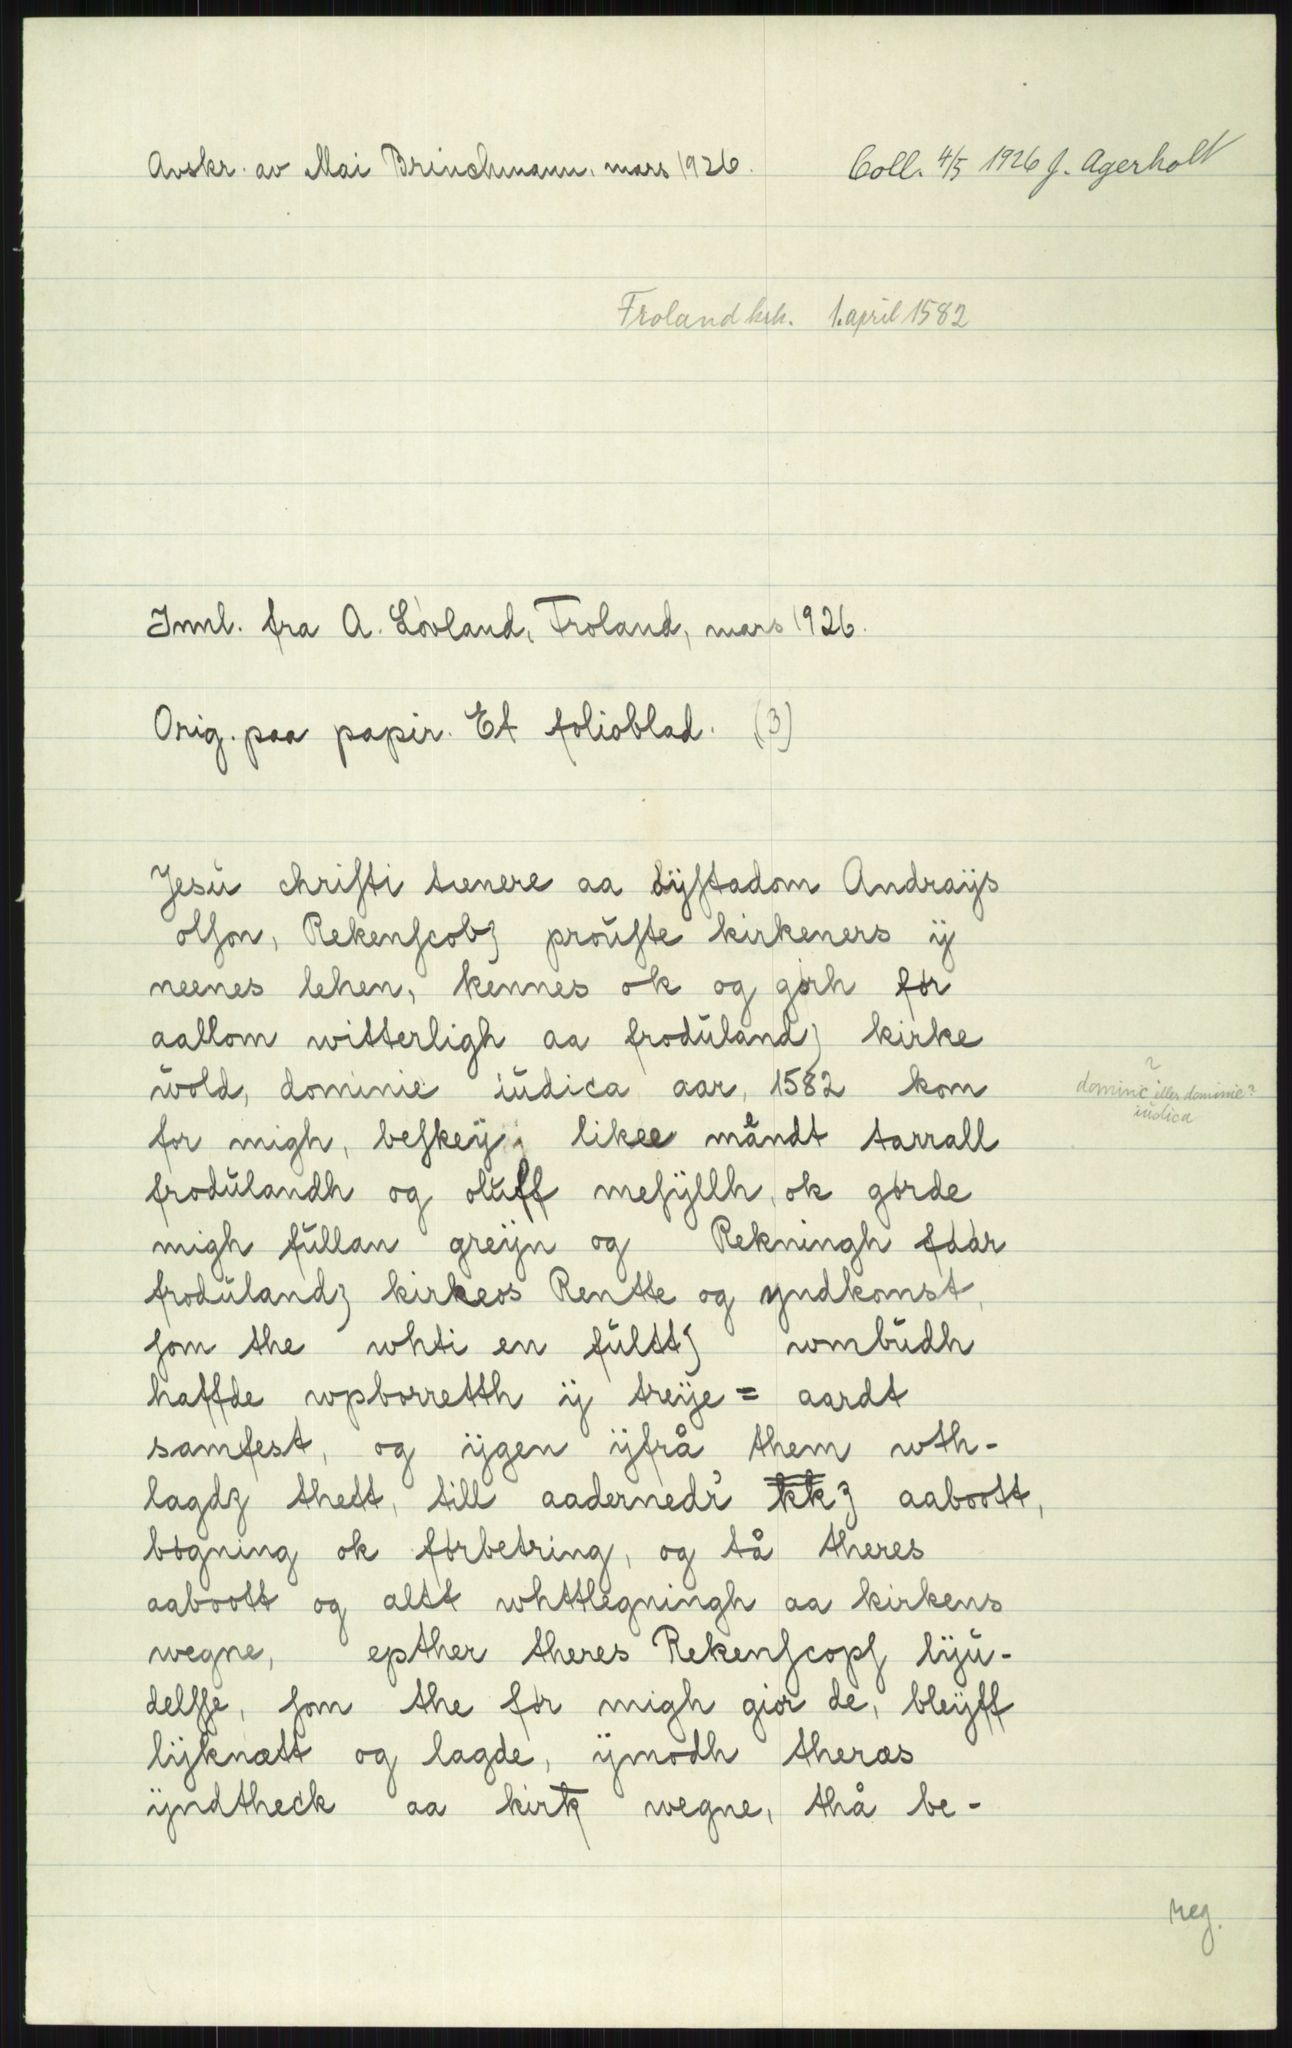 Avskr. av Mai Brinchmann, mars 1926.
Coll. 4/5 1926 J. Agerholt
Froland krk. 1. april 1582
Innl. fra A. Løvland, Froland, mars 1926.
Orig. paa papir. Et folioblad. (3)
Jesu chriſti tænere aa tÿſtadom Andraÿs
olſon, Rekenſcobʒ prouſte kirkeners ÿ
neenes lehen, kennes ok og gørh før
aallom witterligh aa frodulandʒ kirke
wold, dominie iudica aar, 1582 kom
for migh, beſkeÿ likee måndt tarrall
frodulandh og oluff meſÿllh, ok gørde
migh fullan greÿn og Rekningh fddr
frodulandʒ kirkeos Rentte og yndkomst,
ſom the whti en fulttʒ wmbudh
haffde wpborretth ÿ treÿe = aardt
samfest, og ÿgen ÿfrå them wth-
lagdʒ thett, till aadernedr kkʒ aaboott,
bøgning ok førbetring, og tå theres
aaboott og altt whttlegningh aa kirkens
wegne, epther theres Rekenſcopſ lÿu-
delſſe, ſom the før migh giør de, bleÿff
lÿknætt og lagde, ÿmodh theræs
ÿndtheck aa kirk wegne, thå be-
dominc eller dominie?
?
iudica
reg.